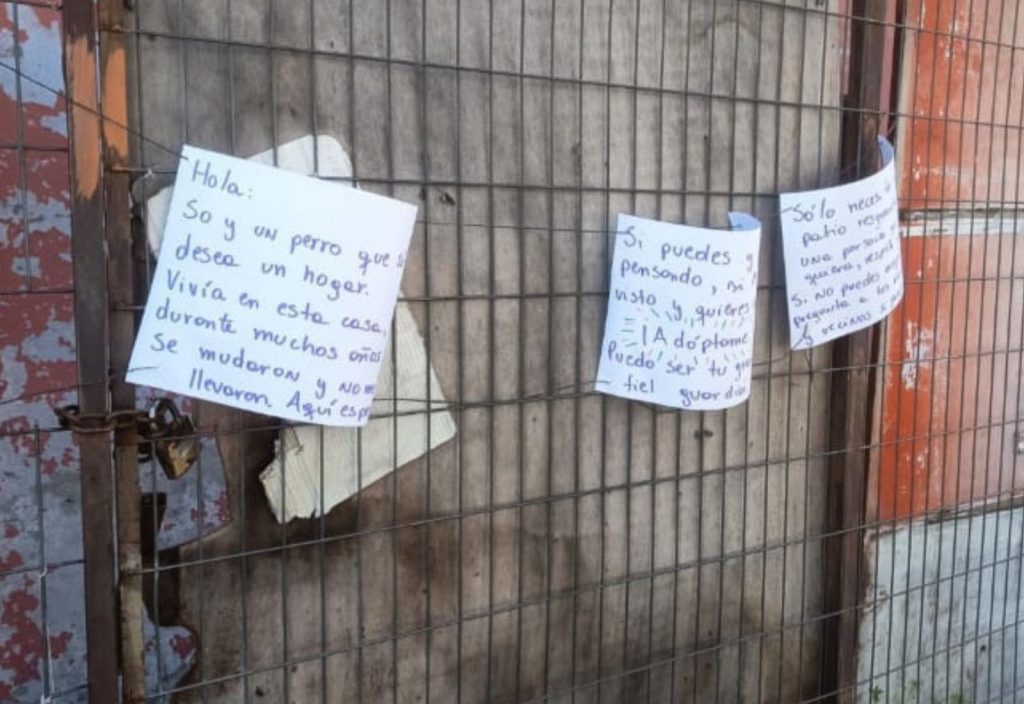 Hola:
So y un perro que
desea un hogar.
Vivía en esta casa,
durante muchos años
se mudaron y no
llevaron. Aquí
Si puedes
pensando,
visto y quieres
¡Adóptame
Puedo ser tu
fiel
Sólo
patio
una
quiera,
Si no puedes
pregunta a
y vecinos